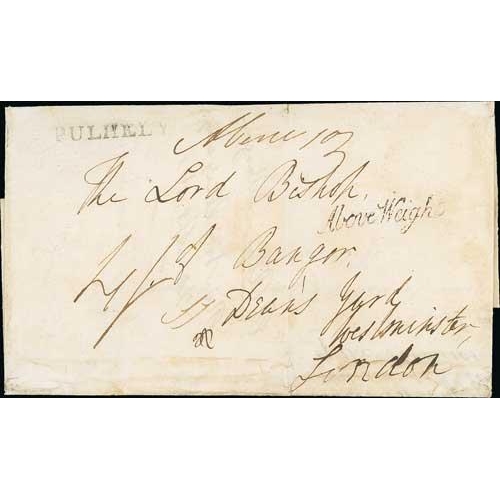 PULHELY
Above 1oz
The Lord Bishop
Above Weight
of Bangor
17 Dean's Yard
Westminster,
London